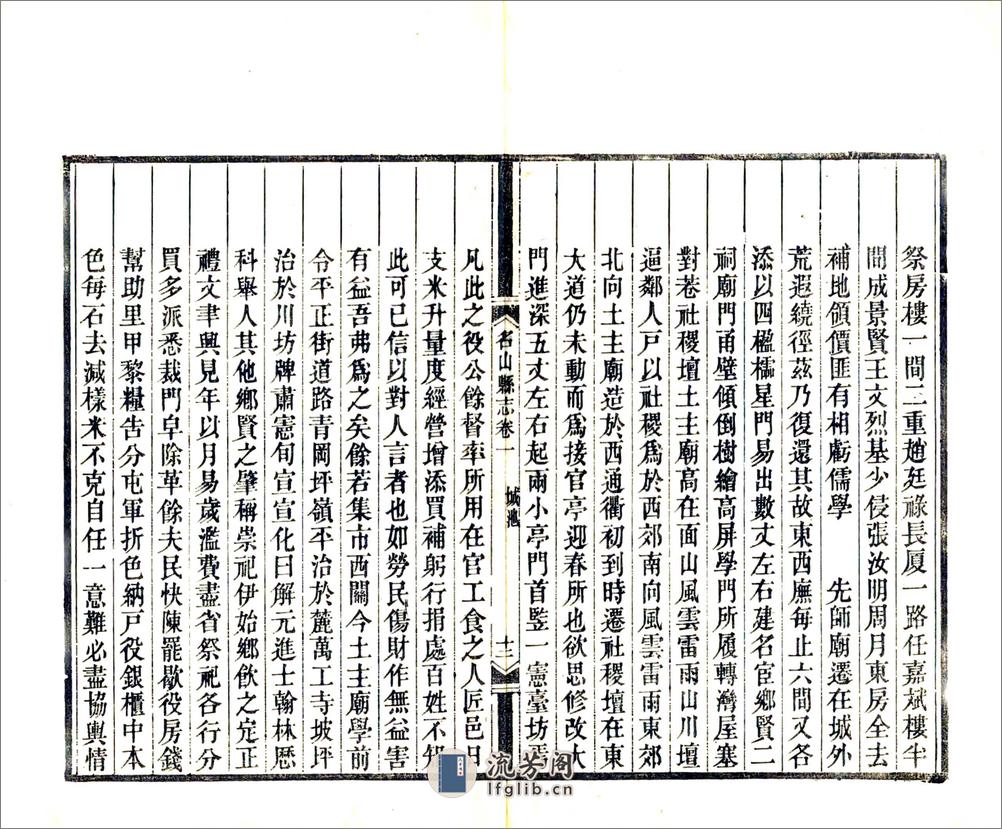 祭房樓一間三重趙廷祿長厦一路任嘉斌樓半
間成景賢王文烈基少侵張汝明周月東房全去
補地領價匪有相虧儒學　先師廟遷在城外
荒遐繞徑茲乃復還其故東西廡每止六間又各
添以四楹櫺星門易出數丈左右建名宦鄉賢二
祠廟門甬壁傾倒樹繪高屏學門所履轉灣屋塞
對巷社稷壇土主廟高在面山風雲雷雨山川壇
逼鄰人戶以社稷爲於西郊南向風雲雷雨東郊
北向土主廟造於西通衢初到時遷社稷壇在東
大道仍未動而爲接官亭迎春所也欲思修改大
門進深五丈左右起兩小亭門首竪一憲臺坊焉
名山縣志卷一　城池　十三
凡此之役公餘督率所用在官工食之人匠邑日
支米升量度經營增添買補躬行捐處百姓不知
此可已信以對人言者也如勞民傷財作無益害
有益吾弗爲之矣餘若集市西關今土主廟學前
令平正街道路青岡坪嶺平治於麓萬工寺坡坪
治於川坊牌肅憲旬宣宣化曰解元進士翰林歷
科舉人其他鄉賢之肇稱崇祀伊始鄉飲之定正
禮文聿興見年以月易歲濫費盡省祭祀各行分
買多派悉裁門皁除革餘夫民快陳罷歇役房錢
幫助里甲黎糧告分屯軍折色納戸役銀櫃中本
色每石去減樣米不克自任一意難必盡協輿情
流芳閣
lfglib.cn